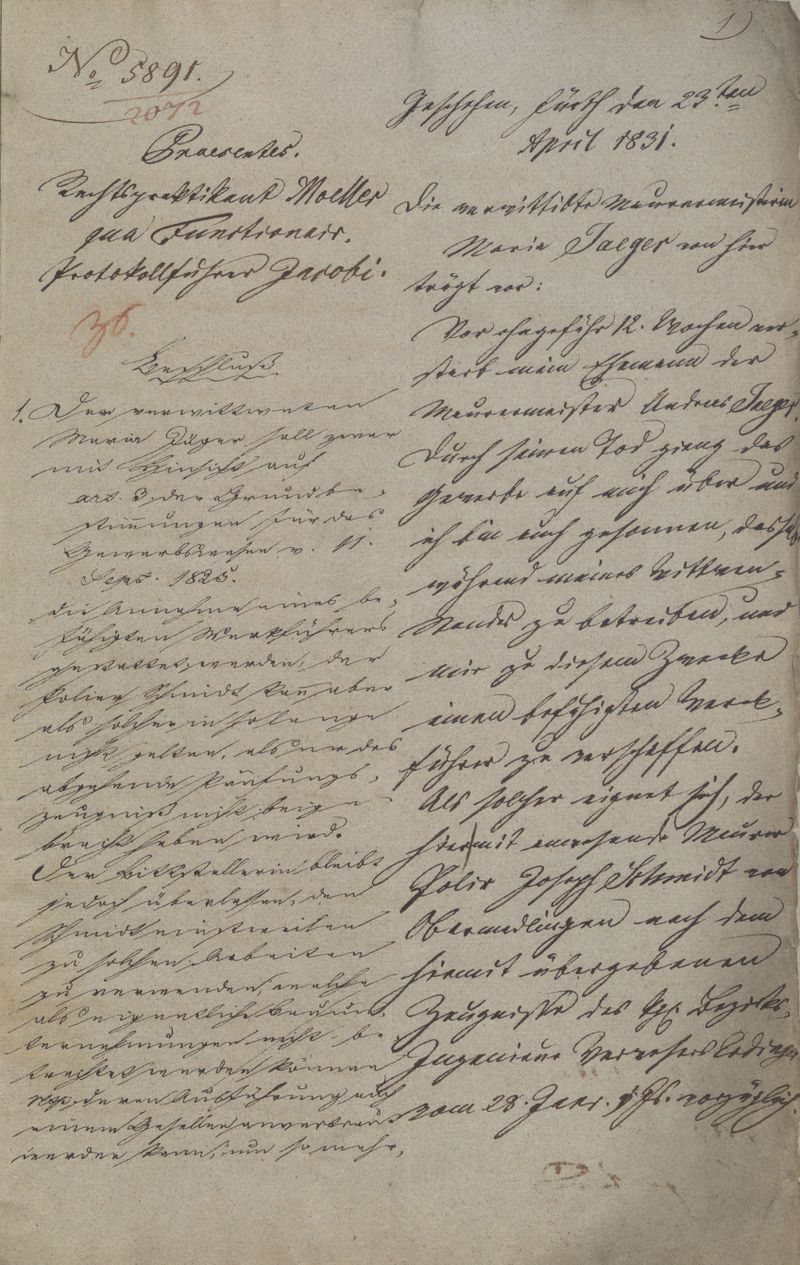 1
No 5891.
2072
Praesentes.
Rechtspraktikant Moeller
qua Functionair.
Protokollführer Jacobi.
36.
Beschluß
1. Der verwittweten
Maria Jäger soll zwar
mit Hinsicht auf
art. 3. der Grundbe-
stimmungen für das
Gewerbswesen v. 11.
Sept. 1825.
die Annahme eines be-
fähigten Werkführers
gestattet werden, der
Polier Schmidt kann aber
als solcher in solange
nicht gelten, als er das
abgehende Prüfungs-
zeugniß nicht beige-
bracht haben wird.
Der Bittstellerin bleibt
jedoch überlassen, den
Schmidt einstweilen
zu solchen Arbeiten
zu verwenden, welche
als eigentliche Bauun-
ternehmungen nicht be-
trachtet werden können
deren Ausführung auch
einem Gesellen anvertraut
werden kann, um so mehr,
Geschehen, Fürth den 23ten
April 1831.
Die verwittibte Maurermeisterin
Maria Jaeger von hier
trägt vor:
Vor ohngefähr 12. Wochen ver-
starb mein Ehemann der
Maurermeister Andreas Jaeger.
Durch seinen Tod gieng das
Gewerbe auf mich über und
ich bin auch gesonnen, dasselbe
während meines Wittwen-
Standes zu betreiben, und
mir zu diesem Zwecke
einen befähigten Werck-
führer zu verschaffen.
Als solcher eignet sich, der
hiermit anwesende Maurer
Polir Joseph Schmidt von
Obermedlingen nach dem
hiermit übergebenen
Zeugnisse des kgl. Bezirks-
Ingenieur Verwesers
vom 28. Janr. d. Js. vorzüglich.